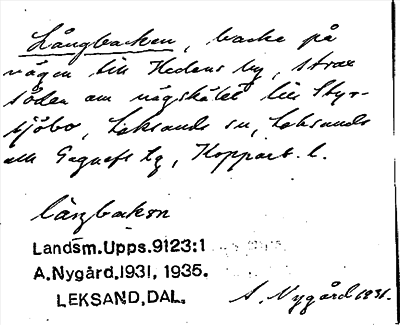 Långbacken, backe på
vägen till Hedens by, strax
söder om vägskälet till Styr-
sjöbo, Leksands sn, Leksands
och Gagnefs tg, Kopparb. l.
långbackœn
Landsm.Upps.9123:1
A.Nygård.1931, 1935.
LEKSAND, DAL.
A. Nygård 1931.